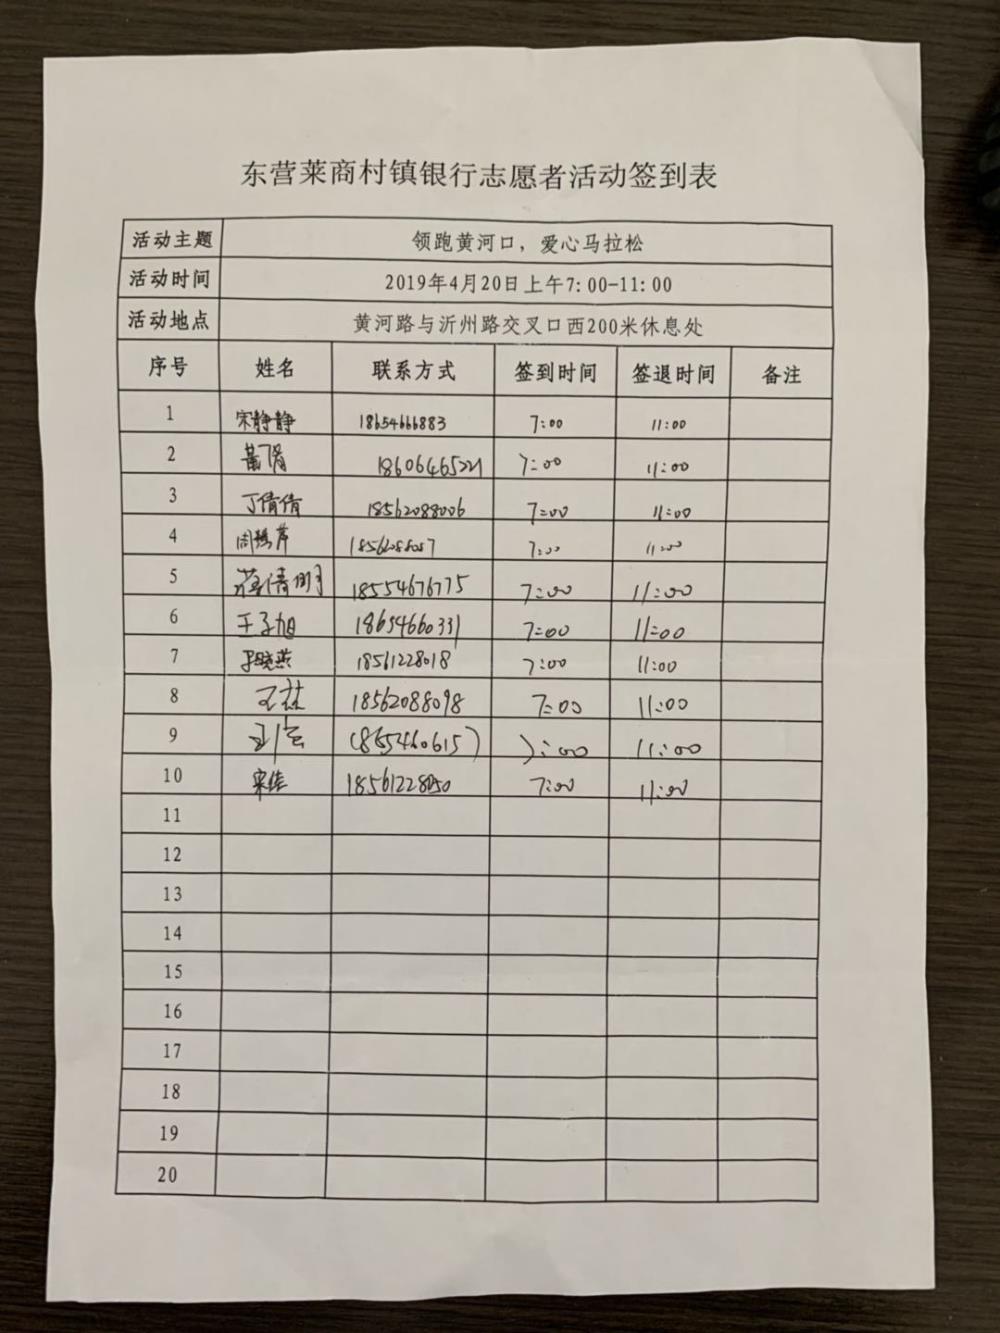 东营莱商村镇银行志愿者活动签到表
活动主题 领跑黄河口，爱心马拉松
活动时间 2019年4月20日上午7:00-11:00
活动地点 黄河路与沂州路交叉口西200米休息处
序号 姓名 联系方式 签到时间 签退时间 备注
1 宋静静 18654666883 7:00 11:00
2 18606465221 7:00 11:00
3 丁倩倩 18562088006 7:00 11:00
4 7:00 11:00
5 18554676775 7:00 11:00
6 王子旭 18654660331 7:00 11:00
7 李晓燕 18561228018 7:00 11:00
8 18562088098 7:00 11:00
9 7:00 11:00
10 宋佳 7:00 11:00
11
12
13
14
15
16
17
18
19
20